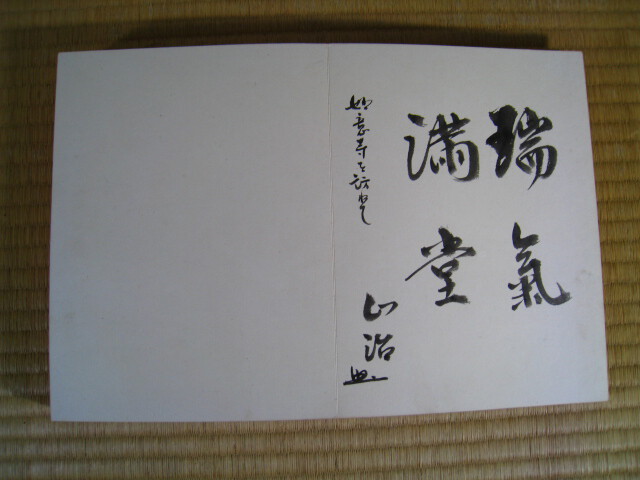 瑞氣
満堂
妙意寺を訪ねて
山治